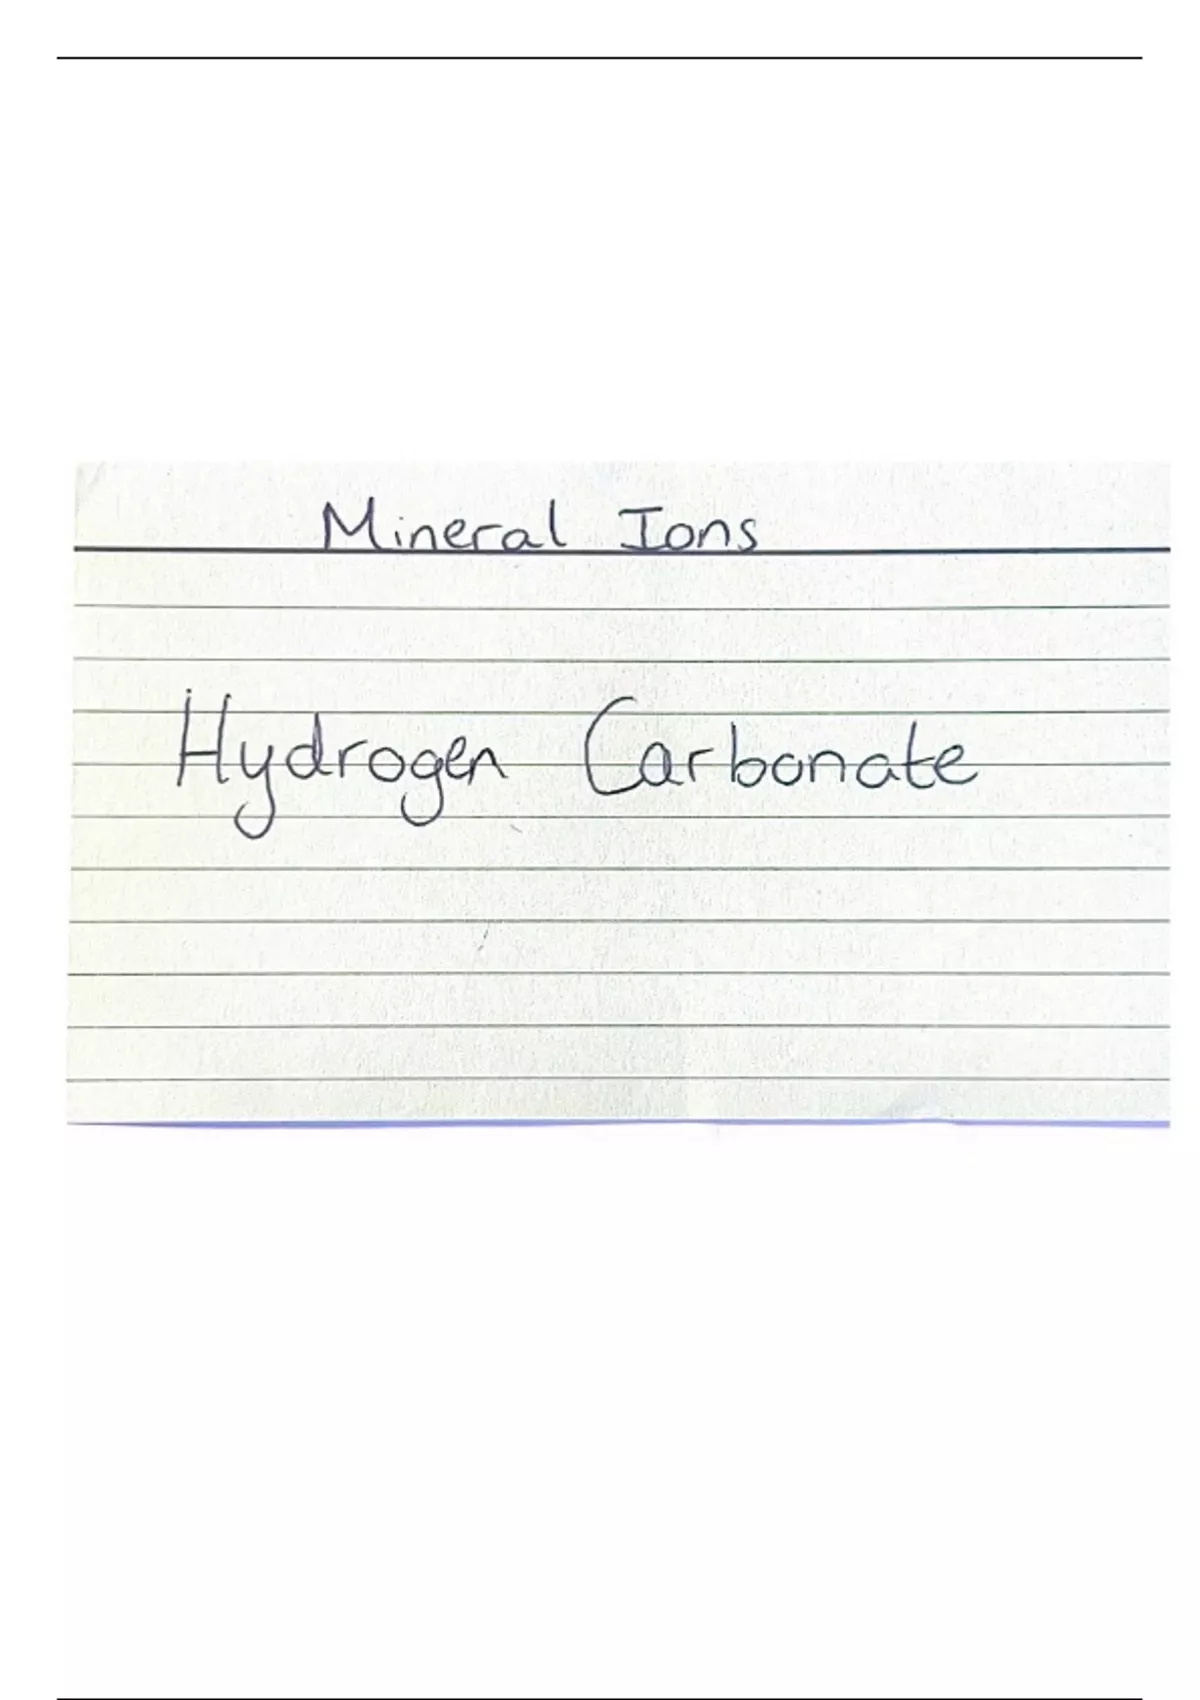 Mineral Ions
Hydrogen Carbonate